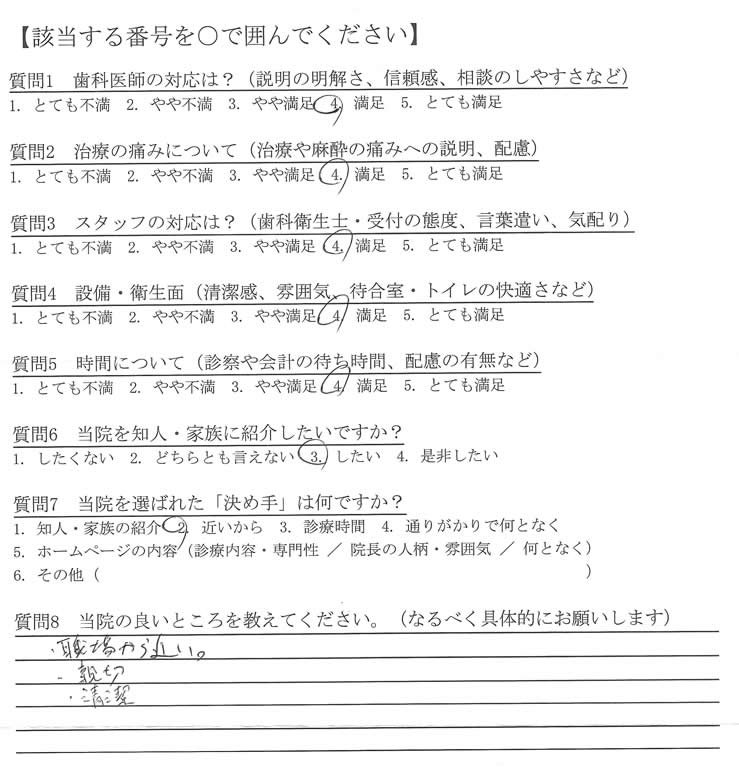 【該当する番号を○で囲んでください】
質問1 歯科医師の対応は？（説明の明解さ、信頼感、相談のしやすさなど）
1. とても不満 2. やや不満 3. やや満足 4. 満足 5. とても満足
質問2 治療の痛みについて（治療や麻酔の痛みへの説明、配慮）
1. とても不満 2. やや不満 3. やや満足 4. 満足 5. とても満足
質問3 スタッフの対応は？（歯科衛生士・受付の態度、言葉遣い、気配り）
1. とても不満 2. やや不満 3. やや満足 4. 満足 5. とても満足
質問4 設備・衛生面（清潔感、雰囲気、待合室・トイレの快適さなど）
1. とても不満 2. やや不満 3. やや満足 4. 満足 5. とても満足
質問5 時間について（診察や会計の待ち時間、配慮の有無など）
1. とても不満 2. やや不満 3. やや満足 4. 満足 5. とても満足
質問6 当院を知人・家族に紹介したいですか？
1. したくない 2. どちらとも言えない 3. したい 4. 是非したい
質問7 当院を選ばれた「決め手」は何ですか？
1. 知人・家族の紹介 2. 近いから 3. 診療時間 4. 通りがかりで何となく
5. ホームページの内容（診療内容・専門性 ／ 院長の人柄・雰囲気 ／ 何となく）
6. その他（ ）
質問8 当院の良いところを教えてください。（なるべく具体的にお願いします）
・職場から近い。
・親切
・清潔